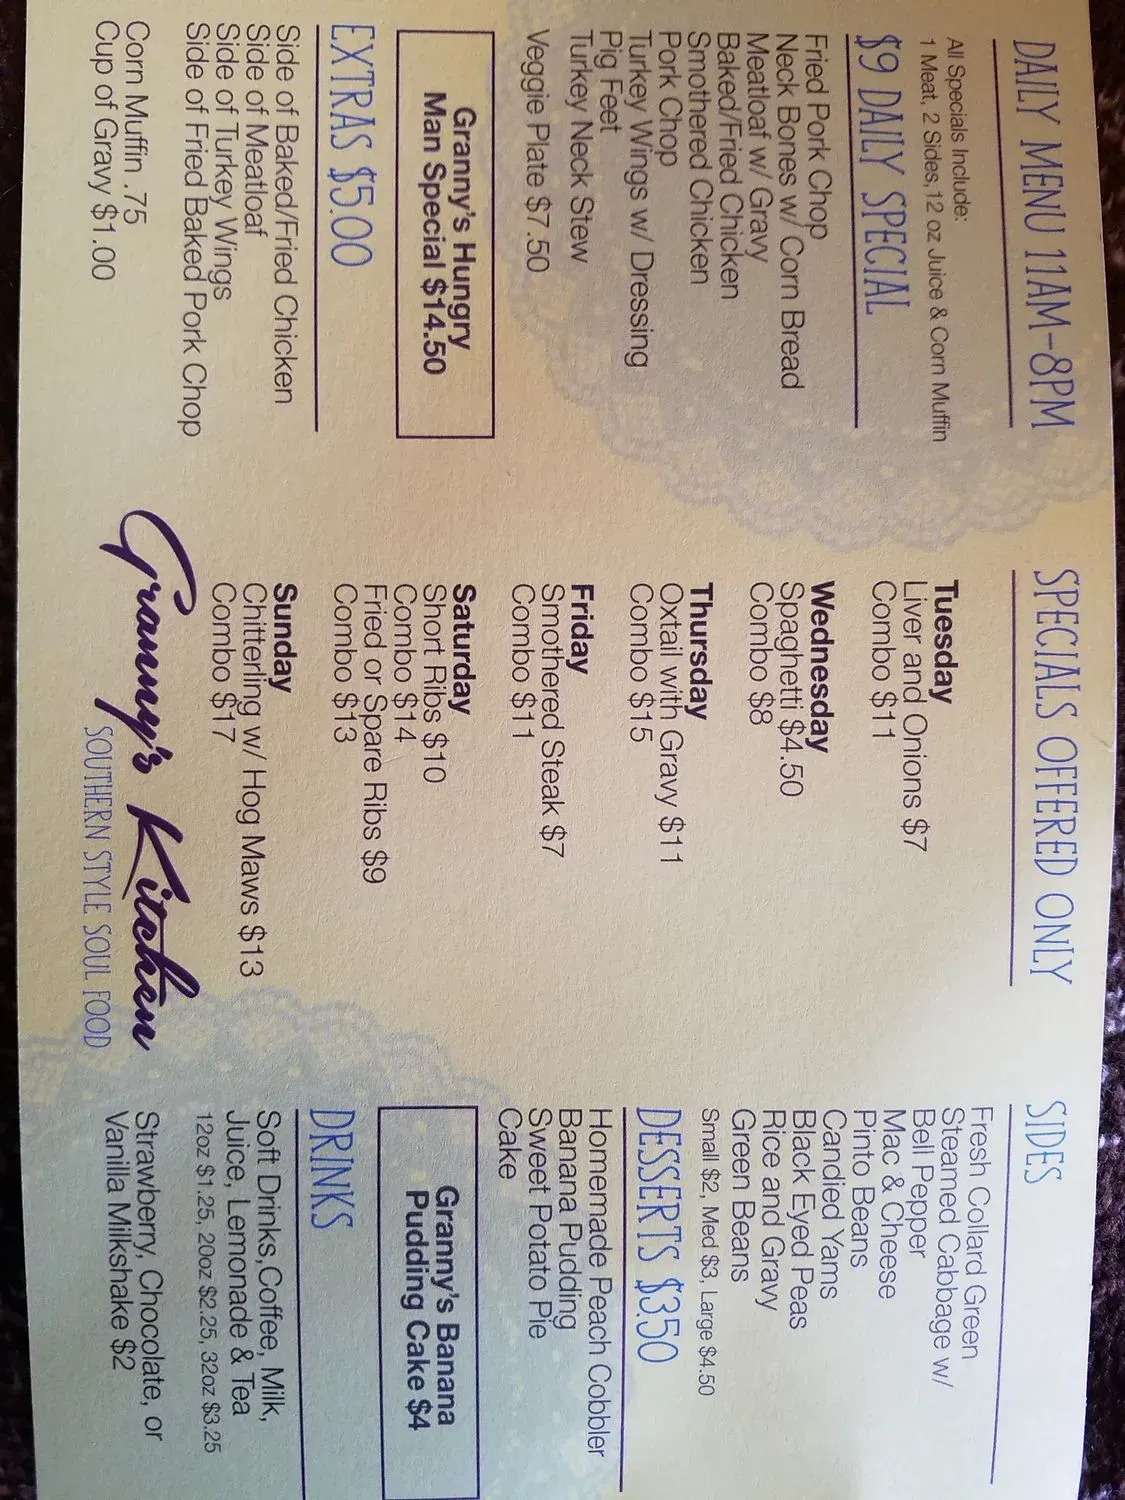 DAILY MENU 11AM-8PM
All Specials Include:
1 Meat, 2 Sides, 12 oz Juice & Corn Muffin
$9 DAILY SPECIAL
Fried Pork Chop
Neck Bones w/ Corn Bread
Meatloaf w/ Gravy
Baked/Fried Chicken
Smothered Chicken
Pork Chop
Turkey Wings w/ Dressing
Pig Feet
Turkey Neck Stew
Veggie Plate $7.50
Granny's Hungry
Man Special $14.50
EXTRAS $5.00
Side of Baked/Fried Chicken
Side of Meatloaf
Side of Turkey Wings
Side of Fried Baked Pork Chop
Corn Muffin .75
Cup of Gravy $1.00
SPECIALS OFFERED ONLY
Tuesday
Liver and Onions $7
Combo $11
Wednesday
Spaghetti $4.50
Combo $8
Thursday
Oxtail with Gravy $11
Combo $15
Friday
Smothered Steak $7
Combo $11
Saturday
Short Ribs $10
Combo $14
Fried or Spare Ribs $9
Combo $13
Sunday
Chitterling w/ Hog Maws $13
Combo $17
Granny's Kitchen
SOUTHERN STYLE SOUL FOOD
SIDES
Fresh Collard Green
Steamed Cabbage w/
Bell Pepper
Mac & Cheese
Pinto Beans
Candied Yams
Black Eyed Peas
Rice and Gravy
Green Beans
Small $2, Med $3, Large $4.50
DESSERTS $3.50
Homemade Peach Cobbler
Banana Pudding
Sweet Potato Pie
Cake
Granny's Banana
Pudding Cake $4
DRINKS
Soft Drinks,Coffee, Milk,
Juice, Lemonade & Tea
12oz $1.25, 20oz $2.25, 32oz $3.25
Strawberry, Chocolate, or
Vanilla Milkshake $2